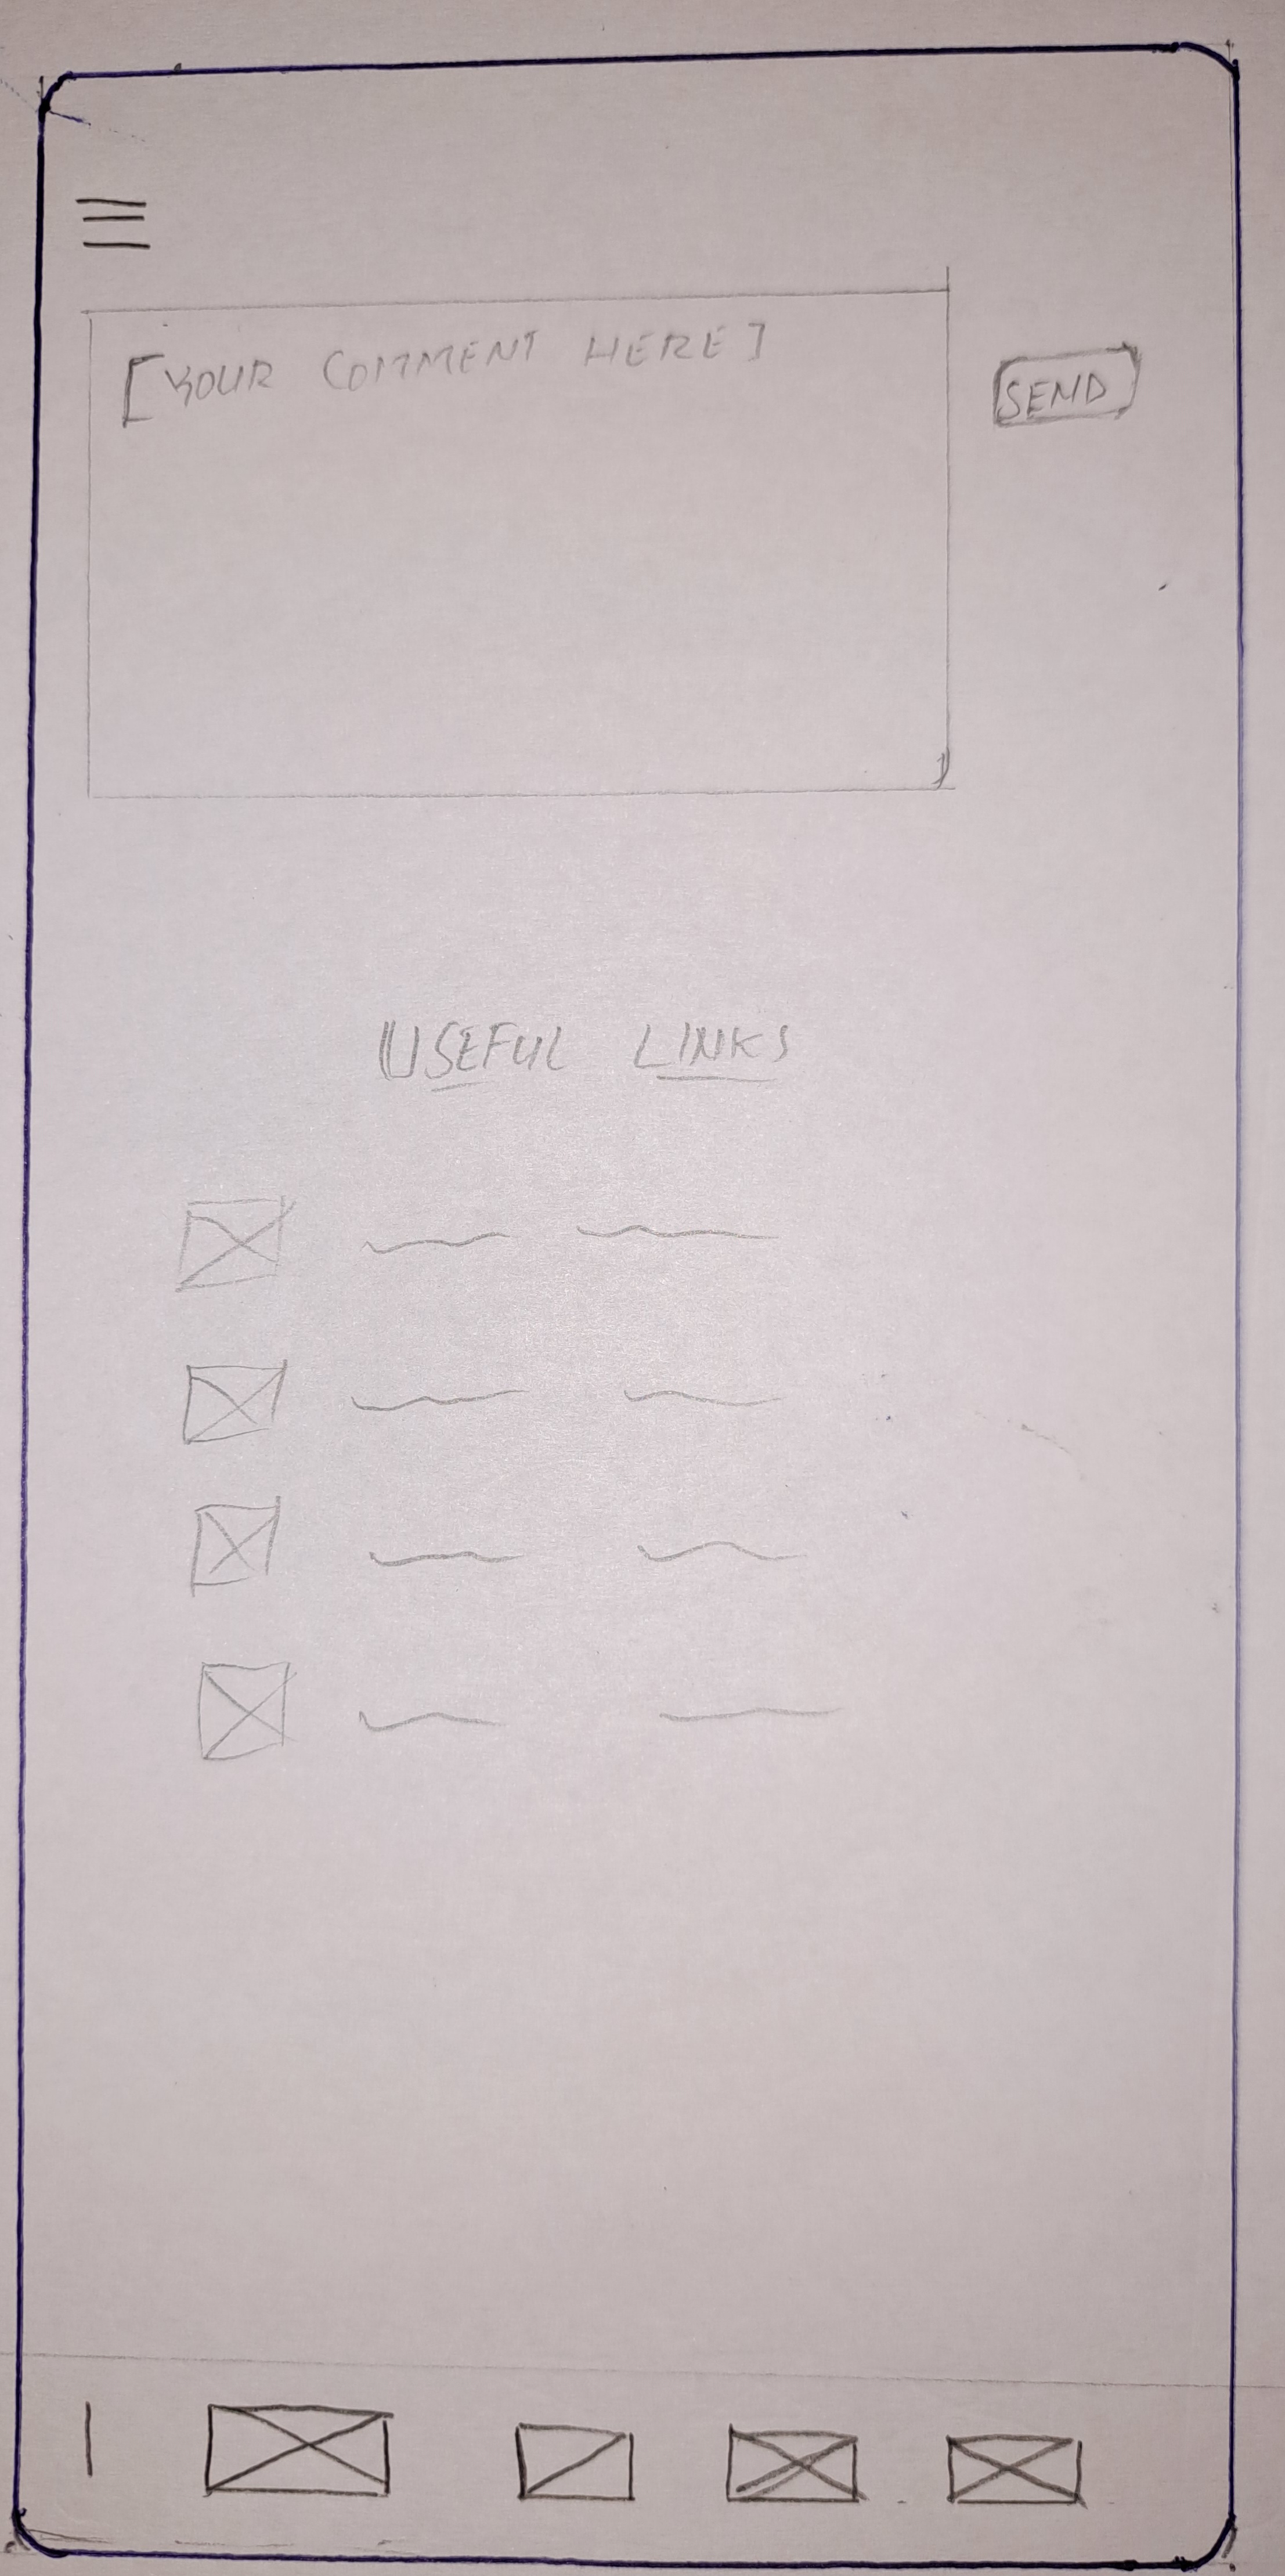 [YOUR COMMENT HERE]
SEND
USEFUL LINKS